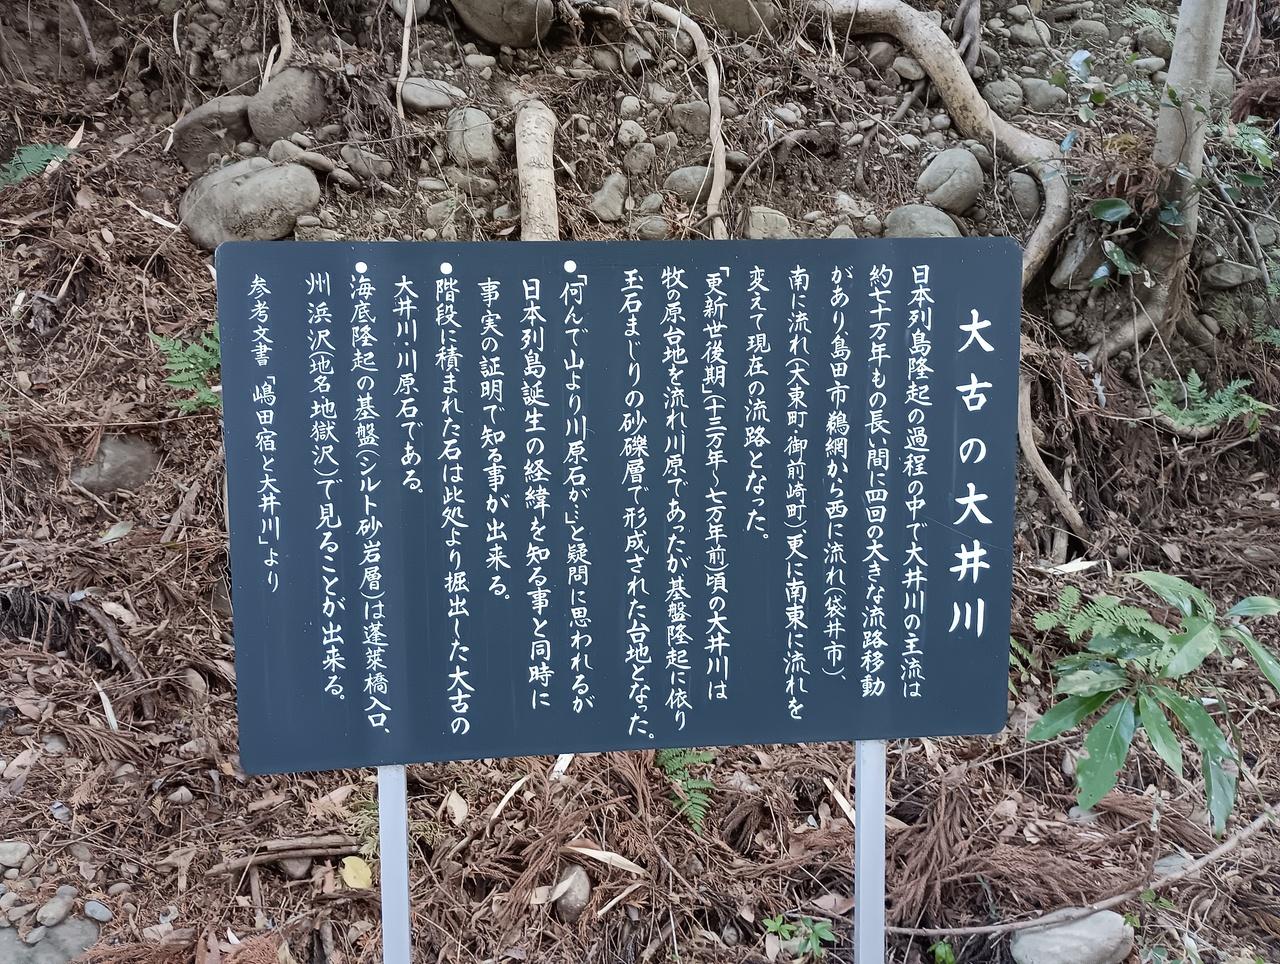 大古の大井川
日本列島隆起の過程の中で大井川の主流は
約七十万年もの長い間に四回の大きな流路移動
があり島田市鵜網から西に流れ(袋井市)、
南に流れ(大東町・御前崎町)更に南東に流れを
変えて現在の流路となった。
「更新世後期」(十三万年~七万年前)頃の大井川は
牧の原台地を流れ川原であったが基盤隆起に依り
玉石まじりの砂礫層で形成された台地となった。
●「何んで山より川原石が…」と疑問に思われるが
日本列島誕生の経緯を知る事と同時に
事実の証明で知る事が出来る。
●階段に積まれた石は此処より掘出した大古の
大井川・川原石である。
●海底隆起の基盤(シルト砂岩層)は蓬萊橋入口、
州浜沢(地名地獄沢)で見ることが出来る。
参考文書「嶋田宿と大井川」より